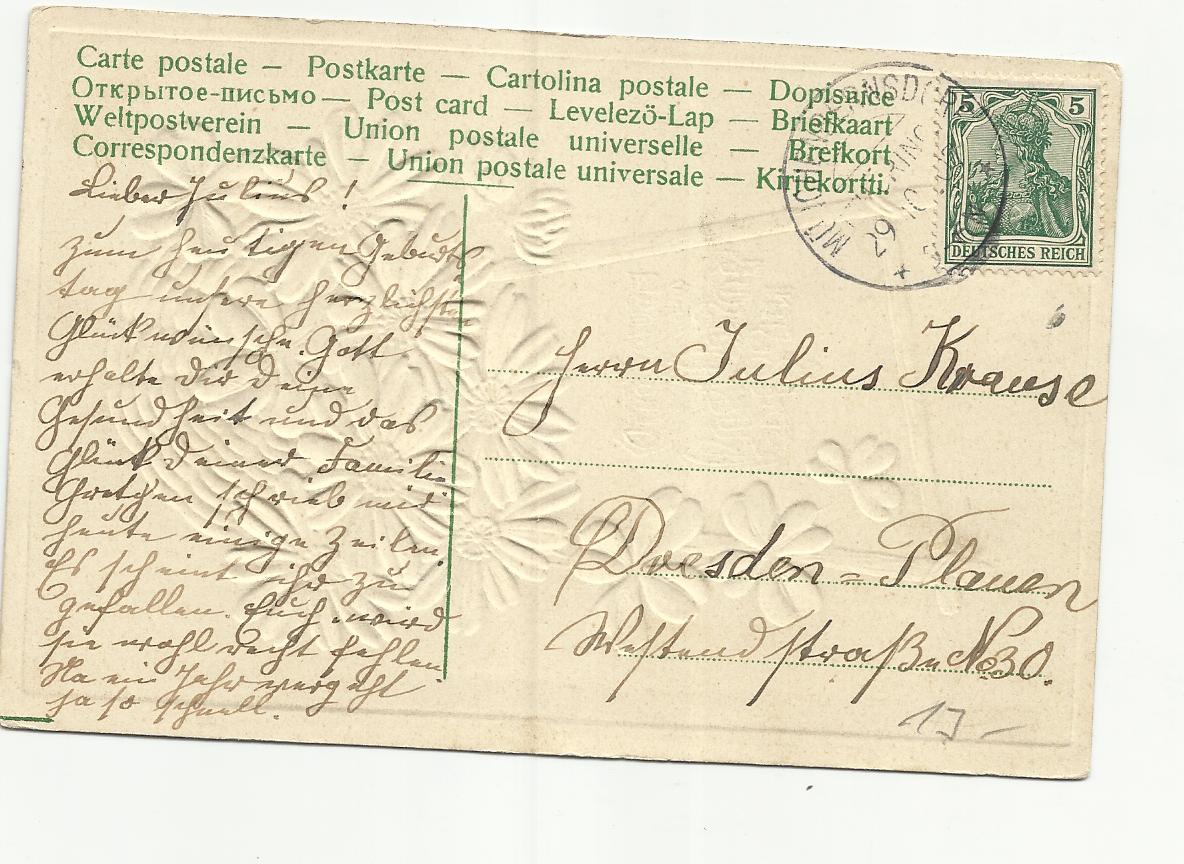 Carte postale — Postkarte — Cartolina postale — Dopisnice
Открытое-письмо — Post card — Levelezö-Lap — Briefkaart
Weltpostverein — Union postale universelle — Brefkort
Correspondenzkarte — Union postale universale — Kirjekortti.
Lieber Julius!
zum heutigen Geburts
tag unsere herzlichsten
Glückwünsche. Gott
erhalte Dir Deine
Gesundheit und das
Glück Deiner Familie
Gretchen schrieb mir
heute einige Zeilen.
Es scheint ihr zu
gefallen. Euch wird
sie wohl recht fehlen.
Na ein Jahr vergeht
ja so schnell.
5 5
DEUTSCHES REICH
29 10
Herrn Julius Krause
Dresden = Plauen
Westendstraße No 30.